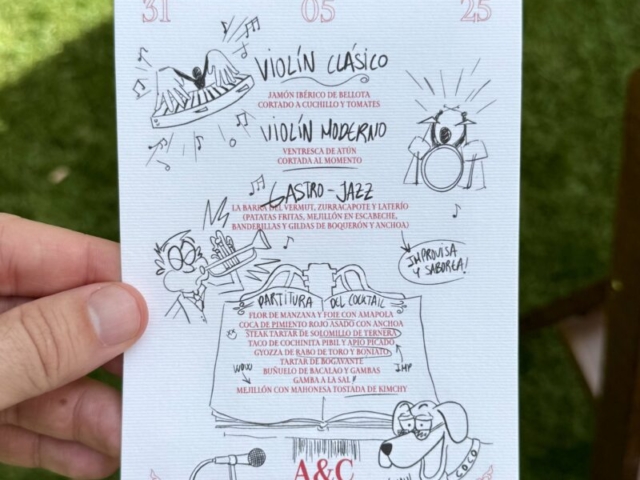 31 05 25
VIOLÍN CLÁSICO
JAMÓN IBÉRICO DE BELLOTA
CORTADO A CUCHILLO Y TOMATES
VIOLÍN MODERNO
VENTRESCA DE ATÚN
CORTADA AL MOMENTO
GASTRO-JAZZ
LA BARRA DEL VERMUT, ZURRACAPOTE Y LATERÍO
(PATATAS FRITAS, MEJILLÓN EN ESCABECHE,
BANDERILLAS Y GILDAS DE BOQUERÓN Y ANCHOA)
IMPROVISA
Y SABOREA!
PARTITURA DEL COCKTAIL
FLOR DE MANZANA Y FOIE CON AMAPOLA
COCA DE PIMIENTO ROJO ASADO CON ANCHOA
STEAK TARTAR DE SOLOMILLO DE TERNERA
TACO DE COCHINITA PIBIL Y APIO PICADO
GYOZZA DE RABO DE TORO Y BONIATO
TARTAR DE BOGAVANTE
WOW
BUÑUELO DE BACALAO Y GAMBAS
GAMBA A LA SAL
MEJILLÓN CON MAHONESA TOSTADA DE KIMCHY
A&C
COCO